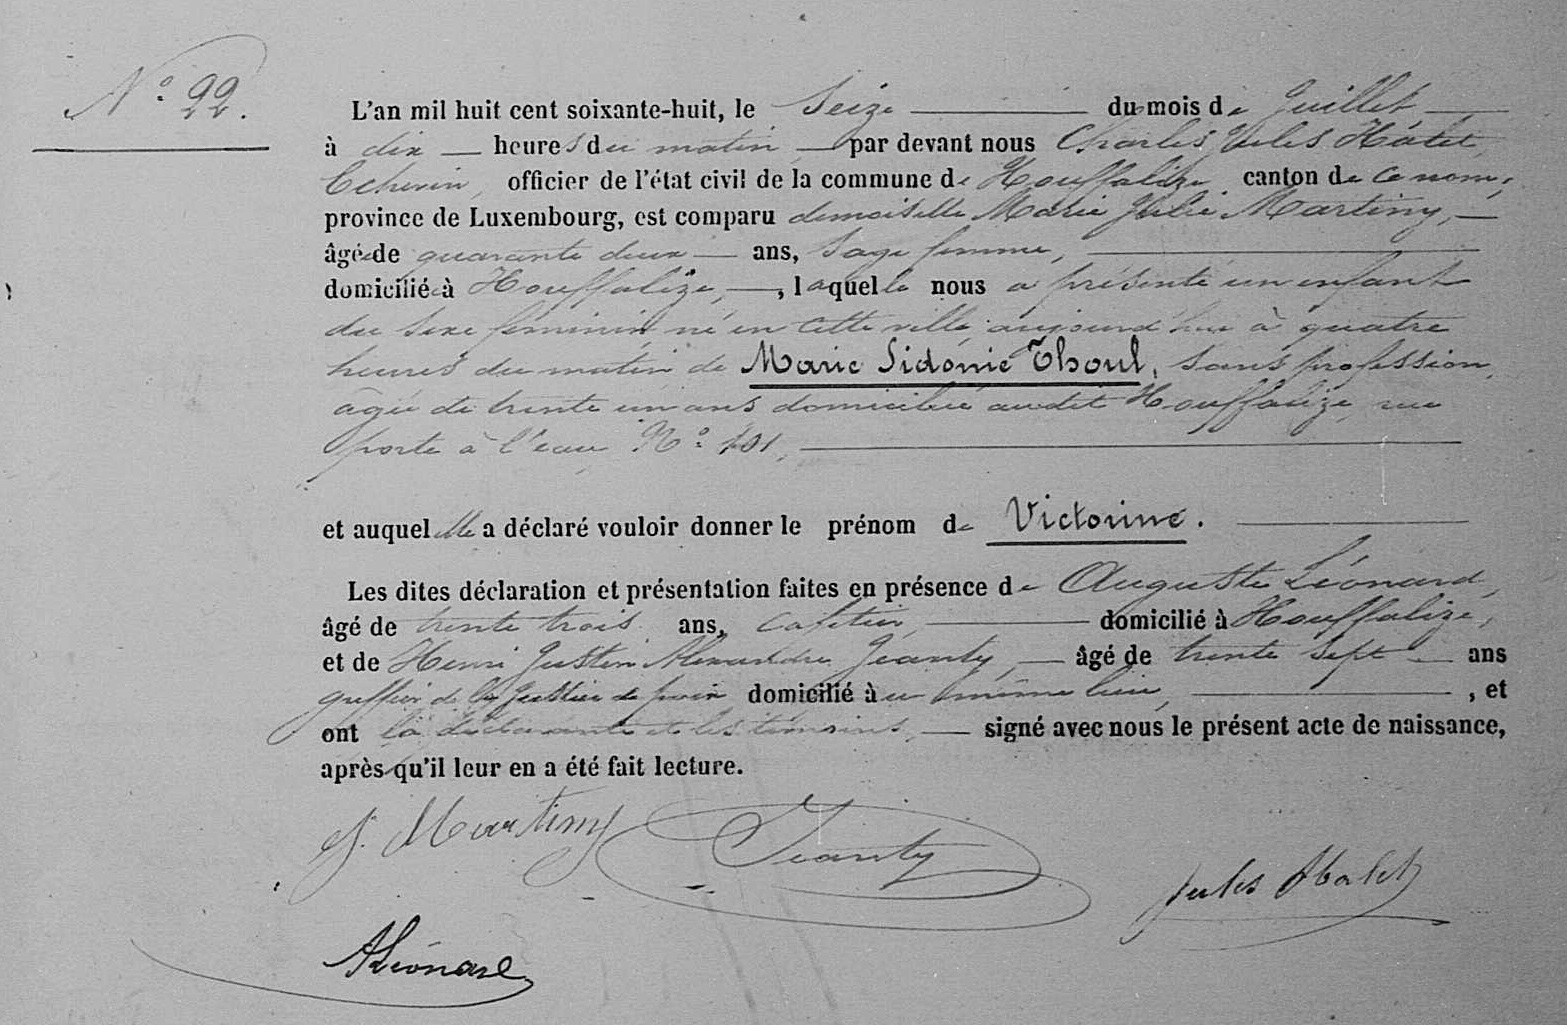 N° 22.
L'an mil huit cent soixante-huit, le Seize du mois de Juillet
à dix heures du matin par devant nous Charles Jules Halet,
Echevin, officier de l'état civil de la commune de Houffalize canton de ce nom,
province de Luxembourg, est comparu demoiselle Marie Julie Martiny,
âgée de quarante deux ans, sage femme,
domiciliée à Houffalize, , laquelle nous a présenté un enfant
du sexe féminin né en cette ville aujourd'hui à quatre
heures du matin de Marie Sidonie Thoul, sans profession,
agée de trente un ans domiciliée audit Houffalize, rue
porte à l'eau N° 101,
et auquel elle a déclaré vouloir donner le prénom de Victorine.
Les dites déclaration et présentation faites en présence de Auguste Léonard,
âgé de trente trois ans, cafetier, domicilié à Houffalize,
et de Henri Justin Alexandre Jeanty, âgé de trente sept ans
greffier de la justice de paix domicilié à u même lieu, , et
ont la déclarante et les témoins, signé avec nous le présent acte de naissance,
après qu'il leur en a été fait lecture.
J. Martiny Jeanty
Jules Halet
A Léonard